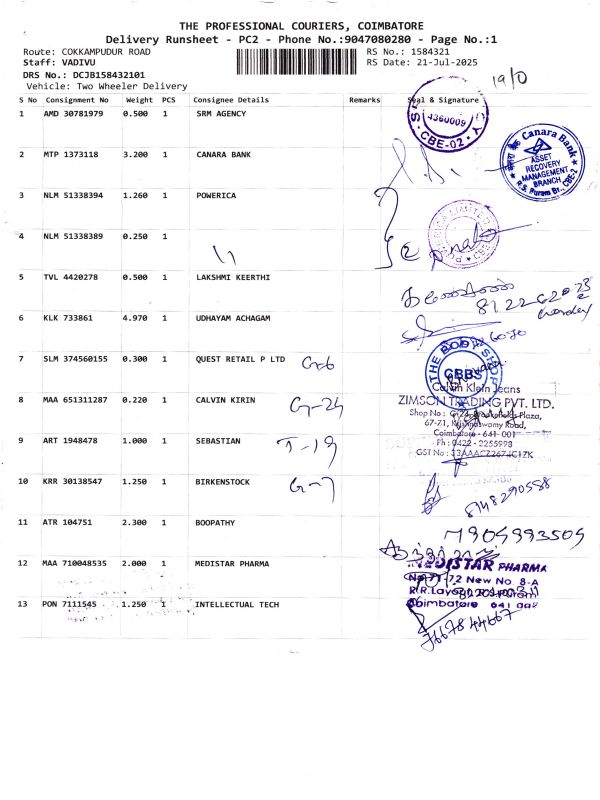 THE PROFESSIONAL COURIERS, COIMBATORE
Delivery Runsheet - PC2 - Phone No.:9047080280 - Page No.:1
Route: COKKAMPUDUR ROAD RS No.: 1584321
Staff: VADIVU RS Date: 21-Jul-2025
DRS No.: DCJB158432101
Vehicle: Two Wheeler Delivery
19/0
S No Consignment No Weight PCS Consignee Details Remarks Seal & Signature
1 AMD 30781979 0.500 1 SRM AGENCY
4360009
CBE-02
2 MTP 1373118 3.200 1 CANARA BANK
Canara Bank
ASSET
RECOVERY
MANAGEMENT
BRANCH
R.S. Puram Br., CBE-2
3 NLM 51338394 1.260 1 POWERICA
4 NLM 51338389 0.250 1
5 TVL 4420278 0.500 1 LAKSHMI KEERTHI
6 KLK 733861 4.970 1 UDHAYAM ACHAGAM
7 SLM 374560155 0.300 1 QUEST RETAIL P LTD G-6
THE BODY SHOP
CBBS
8 MAA 651311287 0.220 1 CALVIN KIRIN G-24
Calvin Klein Jeans
ZIMSON TRADING PVT. LTD.
Shop No : G-24, Brookefields Plaza,
67-71, Krishnaswamy Road,
Coimbatore - 641 001
Ph : 0422 - 2255998
9 ART 1948478 1.000 1 SEBASTIAN T-19
GST No : 33AAACZ2674C1ZK
10 KRR 30138547 1.250 1 BIRKENSTOCK G-7
8148290558
11 ATR 104751 2.300 1 BOOPATHY
7904993509
12 MAA 710048535 2.000 1 MEDISTAR PHARMA
MEDISTAR PHARMA
No 71-72 New No. 8-A
Coimbatore 641 002
13 PON 7111545 1.250 1 INTELLECTUAL TECH
7667844667